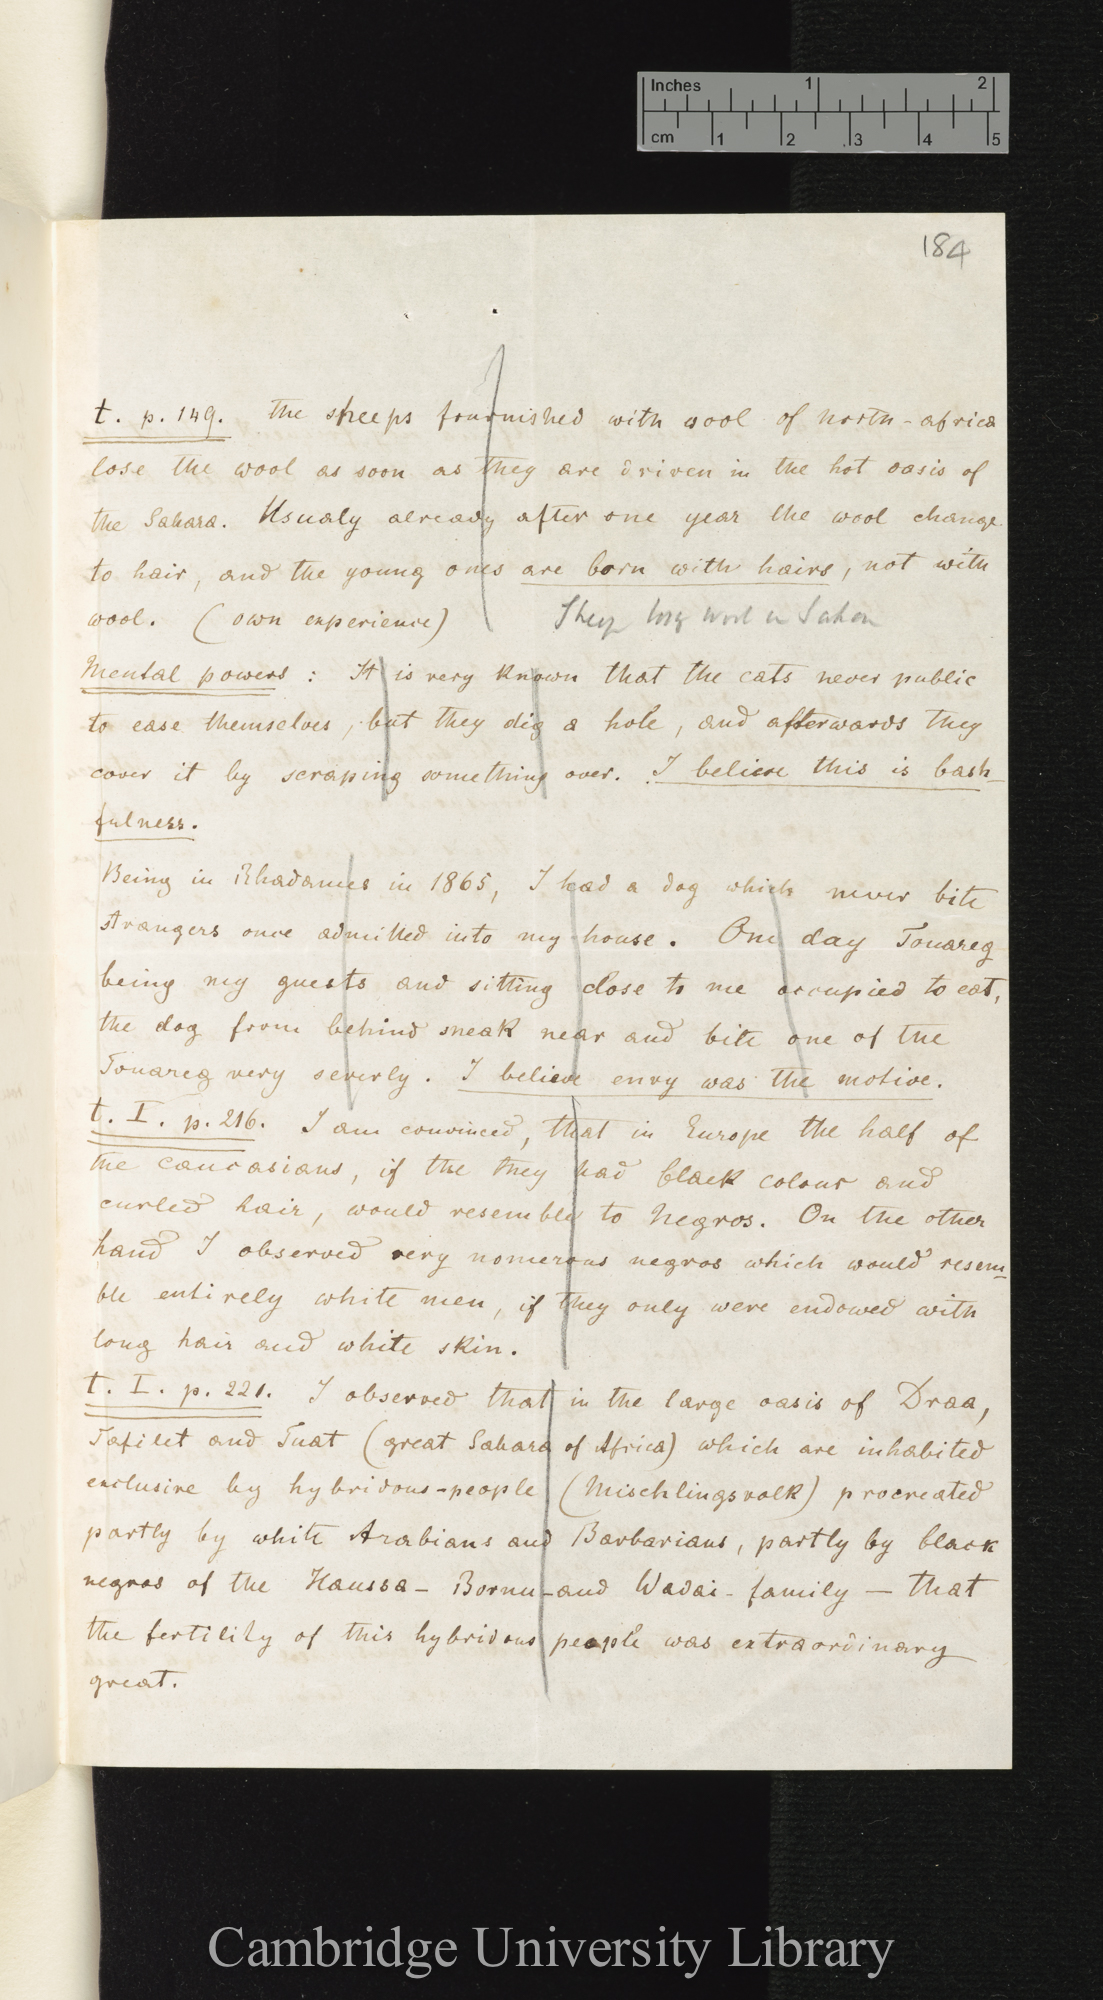 Inches 1 2
cm 1 2 3 4 5
184
t. p. 149. The sheeps fournished with wool of north-africa
lose the wool as soon as they are driven in the hot oasis of
the Sahara. Usualy already after one year the wool change
to hair, and the young ones are born with hairs, not with
wool. (own experience)
Sheep losg wool in Sahara
Mental powers : It is very known that the cats never public
to ease themselves, but they dig a hole, and afterwards they
cover it by scraping something over. I believe this is bash-
fulness.
Being in Rhadames in 1865, I had a dog which never bite
strangers once admitted into my house. One day Touareg
being my guests and sitting close to me occupied to eat,
the dog from behind sneak near and bite one of the
Touareg very severly. I believe envy was the motive.
t. I. p. 216. I am convinced, that in Europe the half of
the caucasians, if the they had black colour and
curled hair, would resemble to Negros. On the other
hand I observed very nomerous negros which would resem-
ble entirely white men, if they only were endowed with
long hair and white skin.
t. I. p. 221. I observed that in the large oasis of Draa,
Tafilet and Tuat (great Sahara of Africa) which are inhabited
exclusive by hybridous-people (Mischlingsvolk) procreated
partly by white Arabians and Barbarians, partly by black
negros of the Haussa- Bornu-and Wadai-family — that
the fertility of this hybridous people was extraordinary
great.
Cambridge University Library